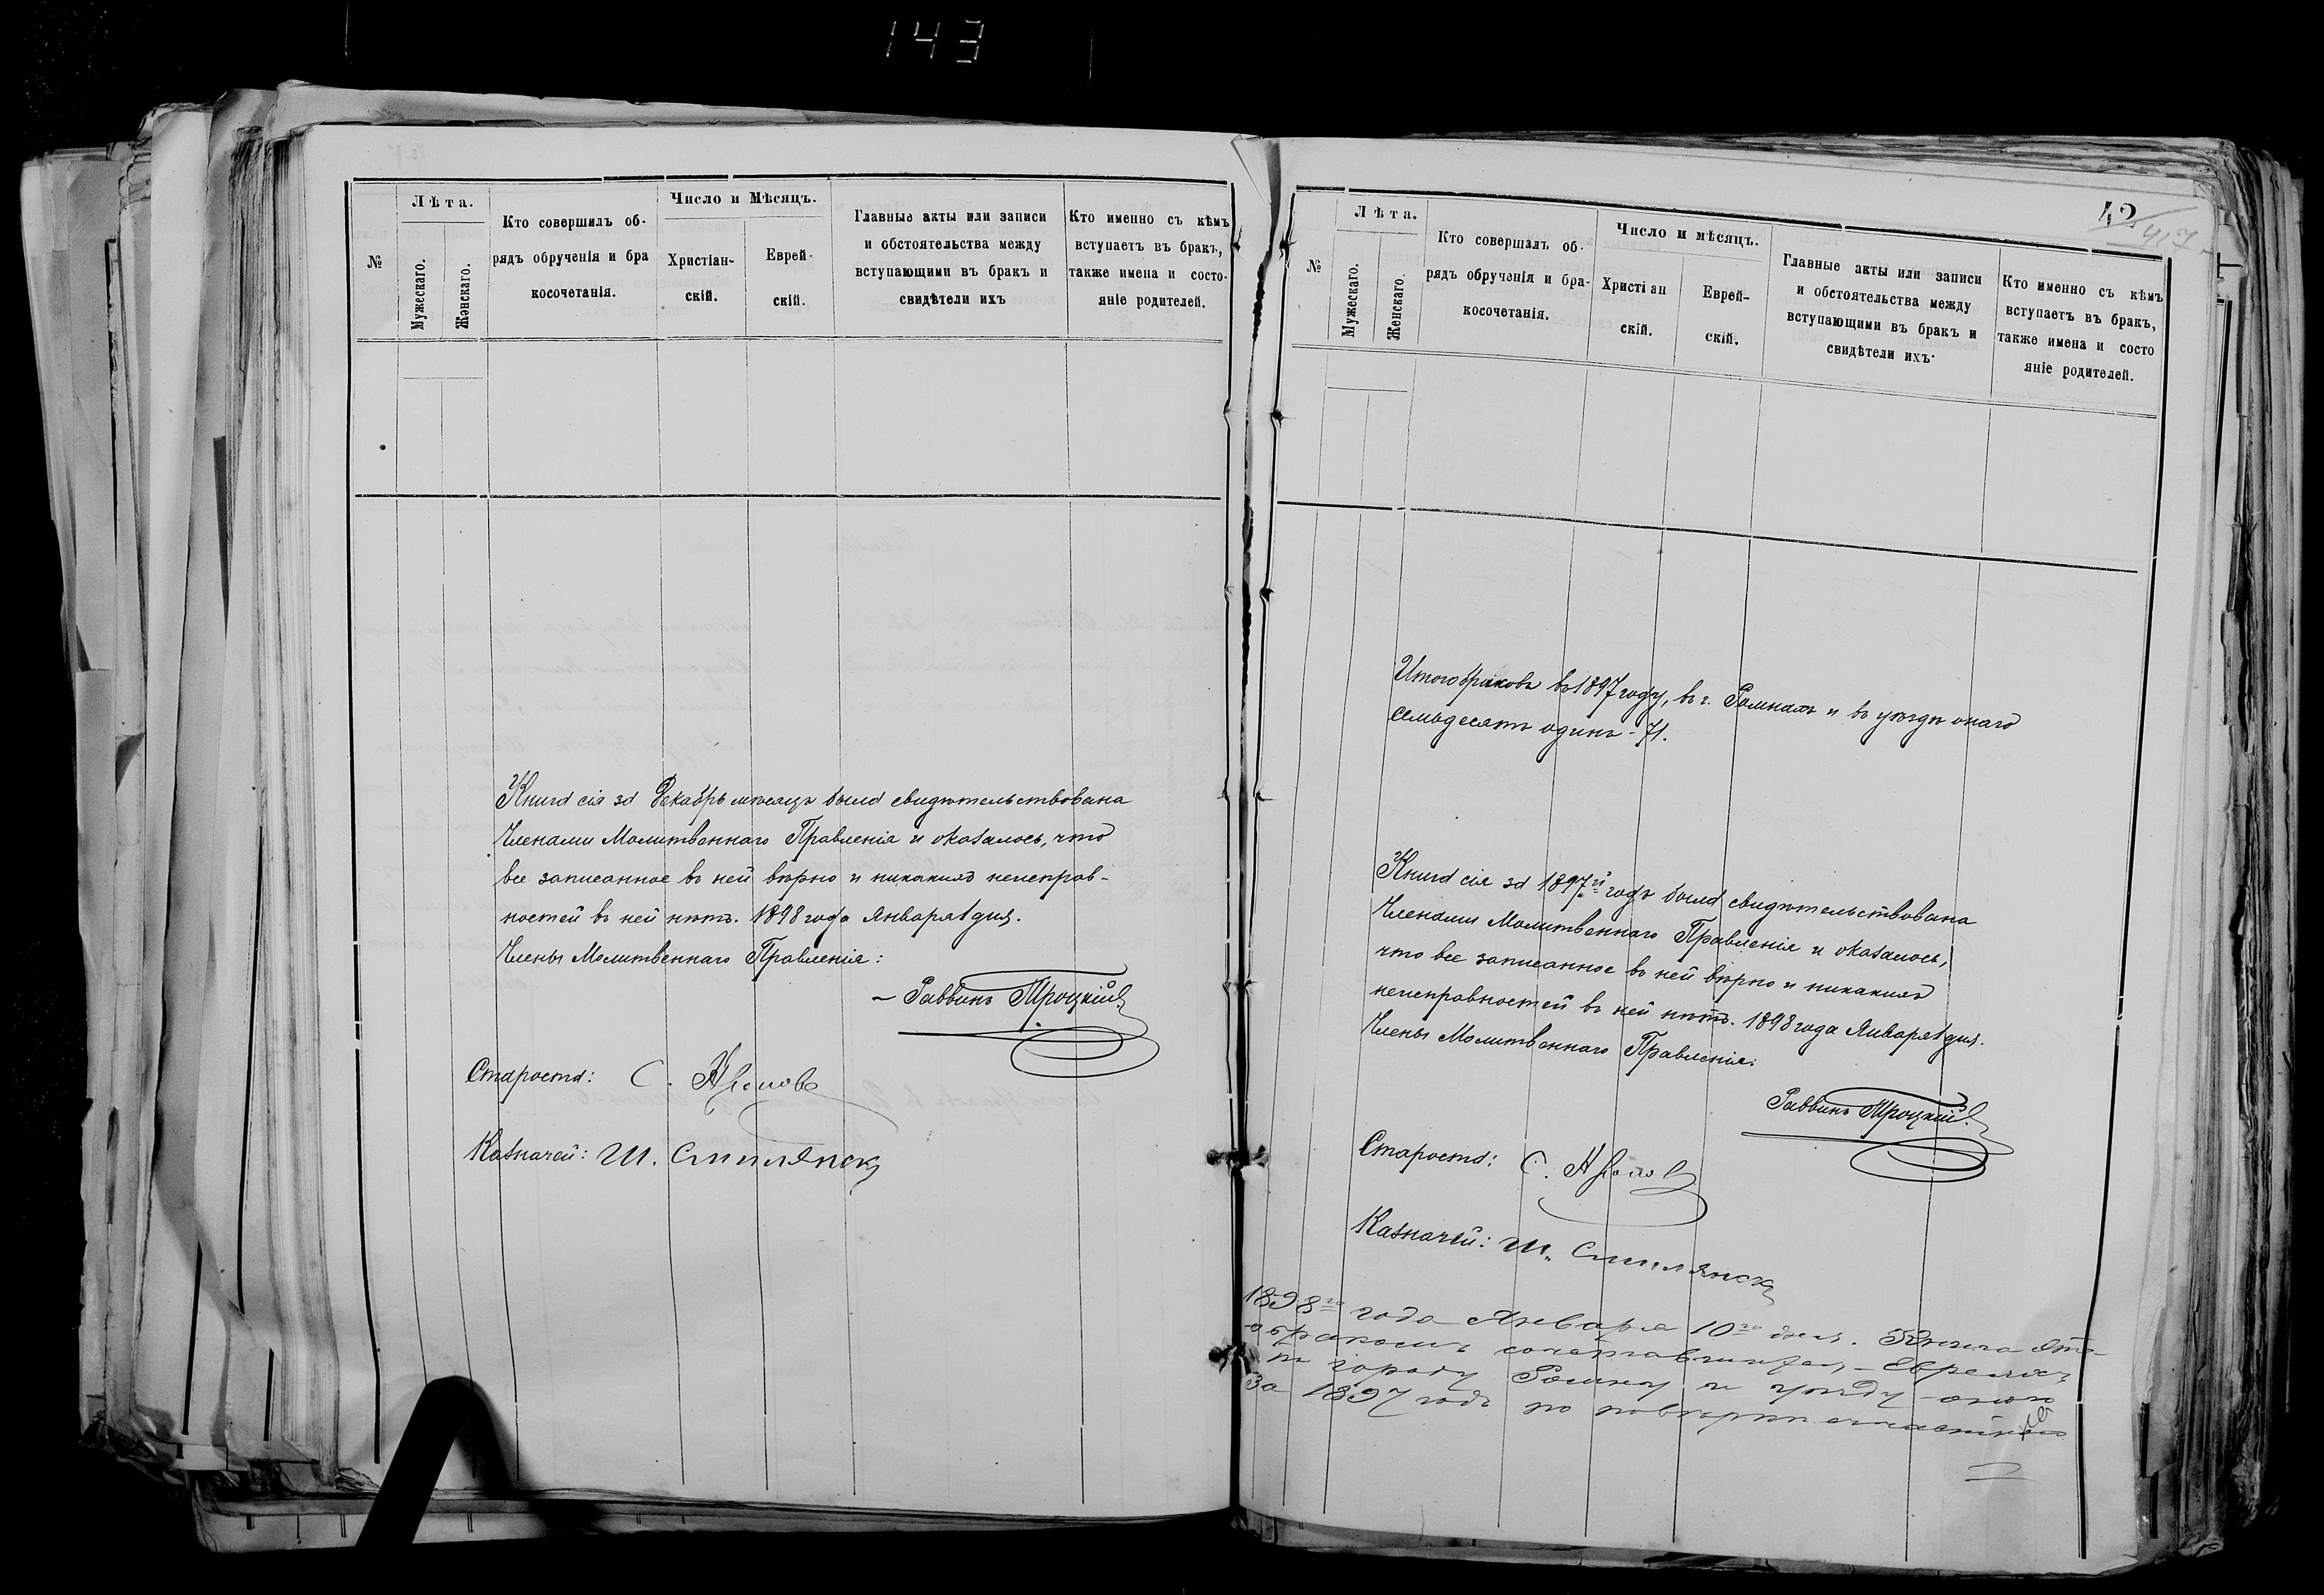 143
№
Лѣта.
Мужескаго.
Женскаго.
Кто совершилъ об-
рядъ обрученія и бра
косочетанія.
Число и Мѣсяцъ.
Христіан-
скій.
Еврей-
скій.
Главные акты или записи
и обстоятельства между
вступающими въ бракъ и
свидѣтели ихъ
Кто именно съ кѣмъ
вступаетъ въ бракъ,
также имена и состо-
яніе родителей.
Книга сія за Декабрь мѣсяцъ была свидѣтельствована
Членами Молитвеннаго Правленія и оказалось, что
все записанное въ ней вѣрно и никакихъ неисправ-
ностей въ ней нѣтъ. 1898 года Января 1 дня.
Члены Молитвеннаго Правленія:
Раввинъ Троцкій
Староста: С.
Казначей: Ш. Смилянск
42
417
№
Лѣта.
Мужескаго.
Женскаго.
Кто совершалъ об-
рядъ обрученія и бра-
косочетанія.
Число и мѣсяцъ.
Христіан
скій.
Еврей-
скій.
Главные акты или записи
и обстоятельства между
вступающими въ бракъ и
свидѣтели ихъ
Кто именно съ кѣмъ
вступаетъ въ бракъ,
также имена и состо
яніе родителей.
Итого браковъ въ 1897 году, въ г. Ромнахъ и въ уѣздѣ онаго
семьдесятъ одинъ - 71.
Книга сія за 1897й годъ была свидѣтельствована
Членами Молитвеннаго Правленія и оказалось,
что все записанное въ ней вѣрно и никакихъ
неисправностей въ ней нѣтъ. 1898 года Января 1 дня.
Члены Молитвеннаго Правленія:
Раввинъ Троцкій
Староста: С.
Казначей: Ш. Смилянск
1898го года Января 10го дня. Книга эта
о бракомъ сочетавшихся Евреяхъ
по городу Ромну и уѣзду оного
за 1897 годъ по повѣркѣ